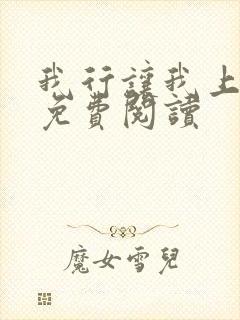 我行讓我上
免費閱讀
魔女雪兒